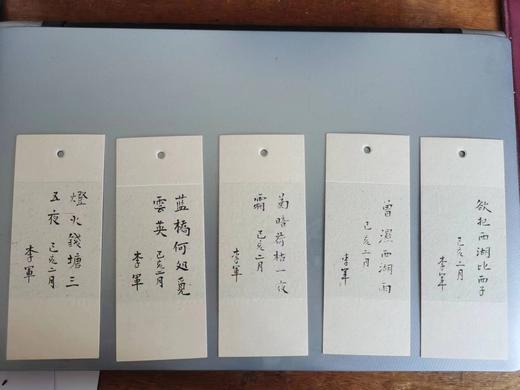 欲把西湖比西子
己亥二月
李軍
曾濕西湖雨
己亥二月
李軍
菊暗荷枯一夜
霜 己亥二月
李軍
蓝橋何処覓
雲英 己亥二月
李軍
燈火錢塘三
五夜 己亥二月
李軍